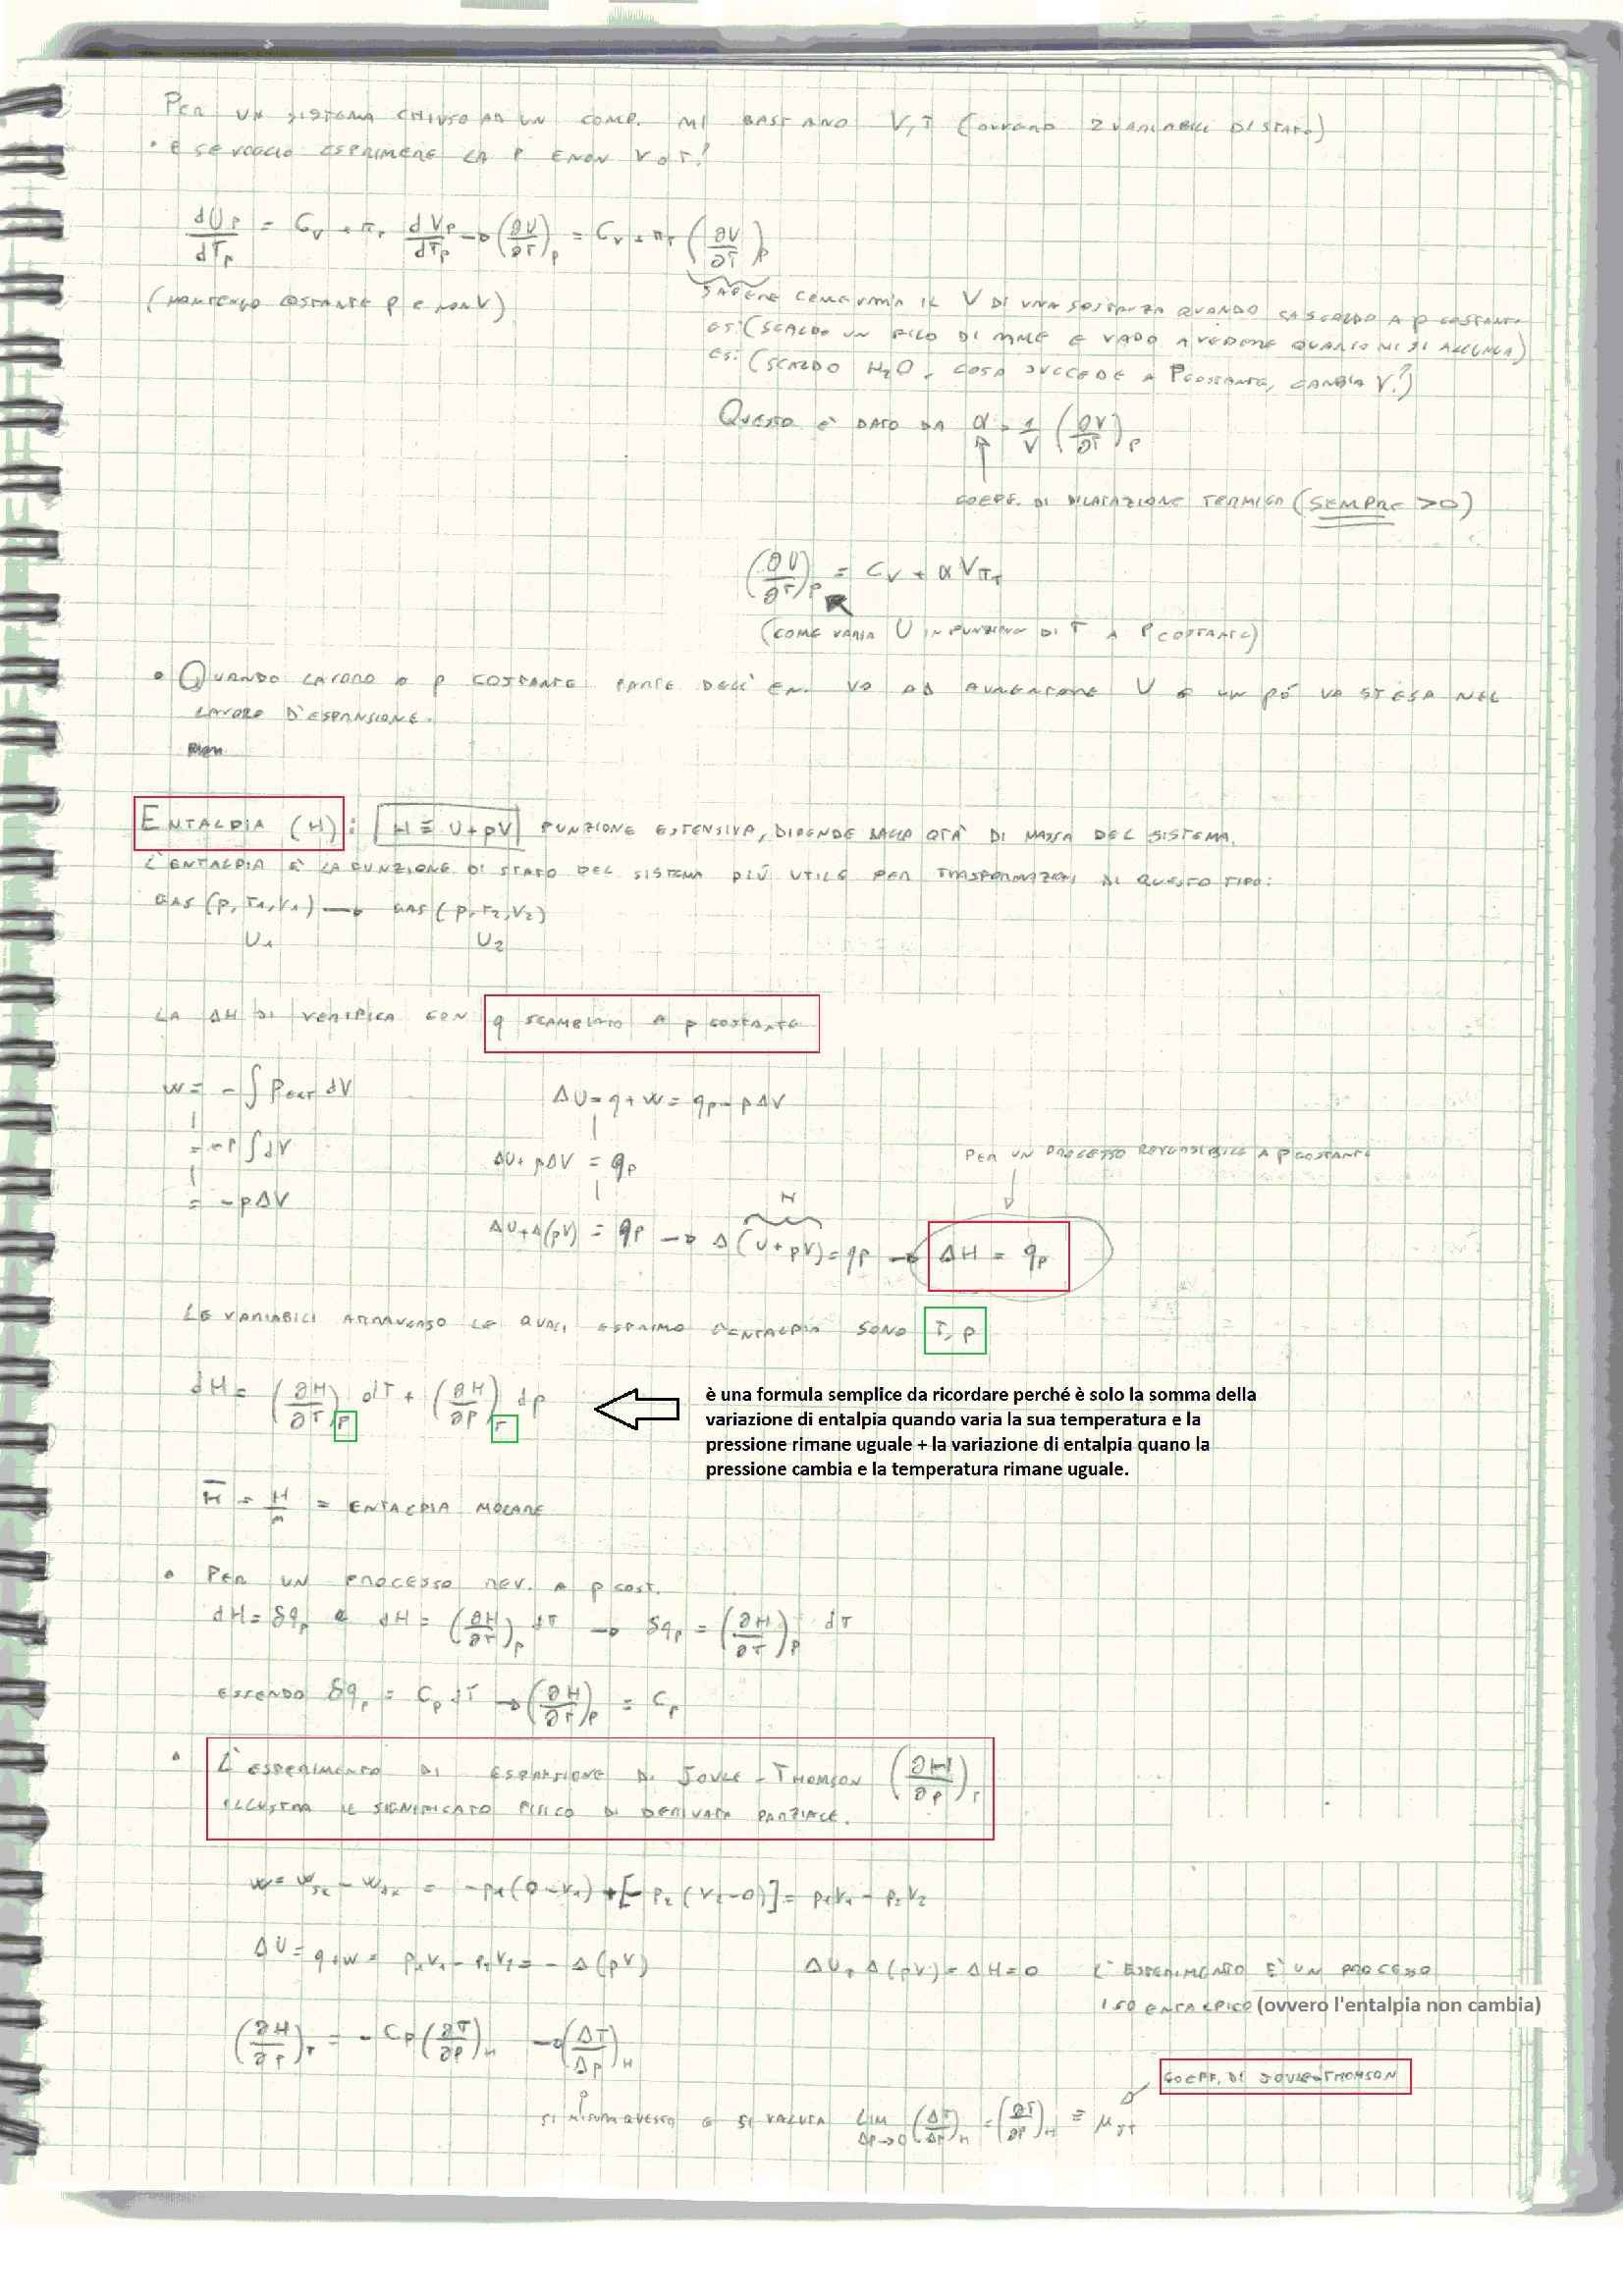 PER UN SISTEMA CHIUSO AD UN COMP. MI BASTANO V,T (OVVERO 2 VARIABILI DI STATO)
• E SE VOGLIO ESPRIMERE LA P E NON V O T?
dUp/dTp = Cv + πT dVp/dTp → (∂U/∂T)p = Cv + πT (∂V/∂T)p
(MANTENGO COSTANTE P E NON V)
SAPERE COME VARIA IL V DI UNA SOSTANZA QUANDO LA SCALDO A P COSTANTE
ES: (SCALDO UN FILO DI RAME E VADO A VEDERE QUANTO MI SI ALLUNGA)
ES: (SCALDO H2O, COSA SUCCEDE A P COSTANTE, CAMBIA V?)
QUESTO È DATO DA α = 1/V (∂V/∂T)p
COEFF. DI DILATAZIONE TERMICA (SEMPRE >0)
(∂U/∂T)p = CV + αVπT
(COME VARIA U IN FUNZIONE DI T A P COSTANTE)
• QUANDO LAVORO A P COSTANTE PARTE DELL'EN. VA AD AUMENTARE U E UN PÓ VA SPESA NEL
LAVORO D'ESPANSIONE.
ENTALPIA (H): H ≡ U+pV FUNZIONE ESTENSIVA, DIPENDE DALLA QTÀ DI MASSA DEL SISTEMA.
L'ENTALPIA È LA FUNZIONE DI STATO DEL SISTEMA PIÙ UTILE PER TRASFORMAZIONI DI QUESTO TIPO:
GAS (p, T1, V1) → GAS (p, T2, V2)
U1 U2
LA ΔH DI VERIFICA CON q SCAMBIATO A p COSTANTE
w = -∫ pext dV
ΔU = q+w = qp - pΔV
= -P∫dV
ΔU + pΔV = qp
PER UN PROCESSO REVERSIBILE A P COSTANTE
= -pΔV
H
ΔU+Δ(pV) = qp → Δ(U+pV) = qp → ΔH = qp
LE VARIABILI ATTRAVERSO LE QUALI ESPRIMO L'ENTALPIA SONO T, P
dH = (∂H/∂T)P dT + (∂H/∂P)T dp
è una formula semplice da ricordare perché è solo la somma della
variazione di entalpia quando varia la sua temperatura e la
pressione rimane uguale + la variazione di entalpia quano la
pressione cambia e la temperatura rimane uguale.
H̄ = H/n = ENTALPIA MOLARE
• PER UN PROCESSO REV. A p COST.
dH = δqp e dH = (∂H/∂T)p dT → δqp = (∂H/∂T)p dT
ESSENDO δqp = Cp dT → (∂H/∂T)p = Cp
• L'ESPERIMENTO DI ESPANSIONE DI JOULE-THOMSON (∂H/∂p)T
ILLUSTRA IL SIGNIFICATO FISICO DI DERIVATA PARZIALE.
w = wsx - wdx = -p1(0-V1) + [-p2(V2-0)] = p1V1 - p2V2
ΔU = q+w = p1V1 - p2V2 = -Δ(pV) ΔU + Δ(pV) = ΔH = 0 L'ESPERIMENTO E' UN PROCESSO
ISOENTALPICO (ovvero l'entalpia non cambia)
(∂H/∂P)T = -Cp (∂T/∂P)H → (ΔT/ΔP)H
COEFF. DI JOULE-THOMSON
SI MISURA QUESTO E SI VALUTA LIM Δp→0 (ΔT/ΔP)H = (∂T/∂P)H ≡ μJT